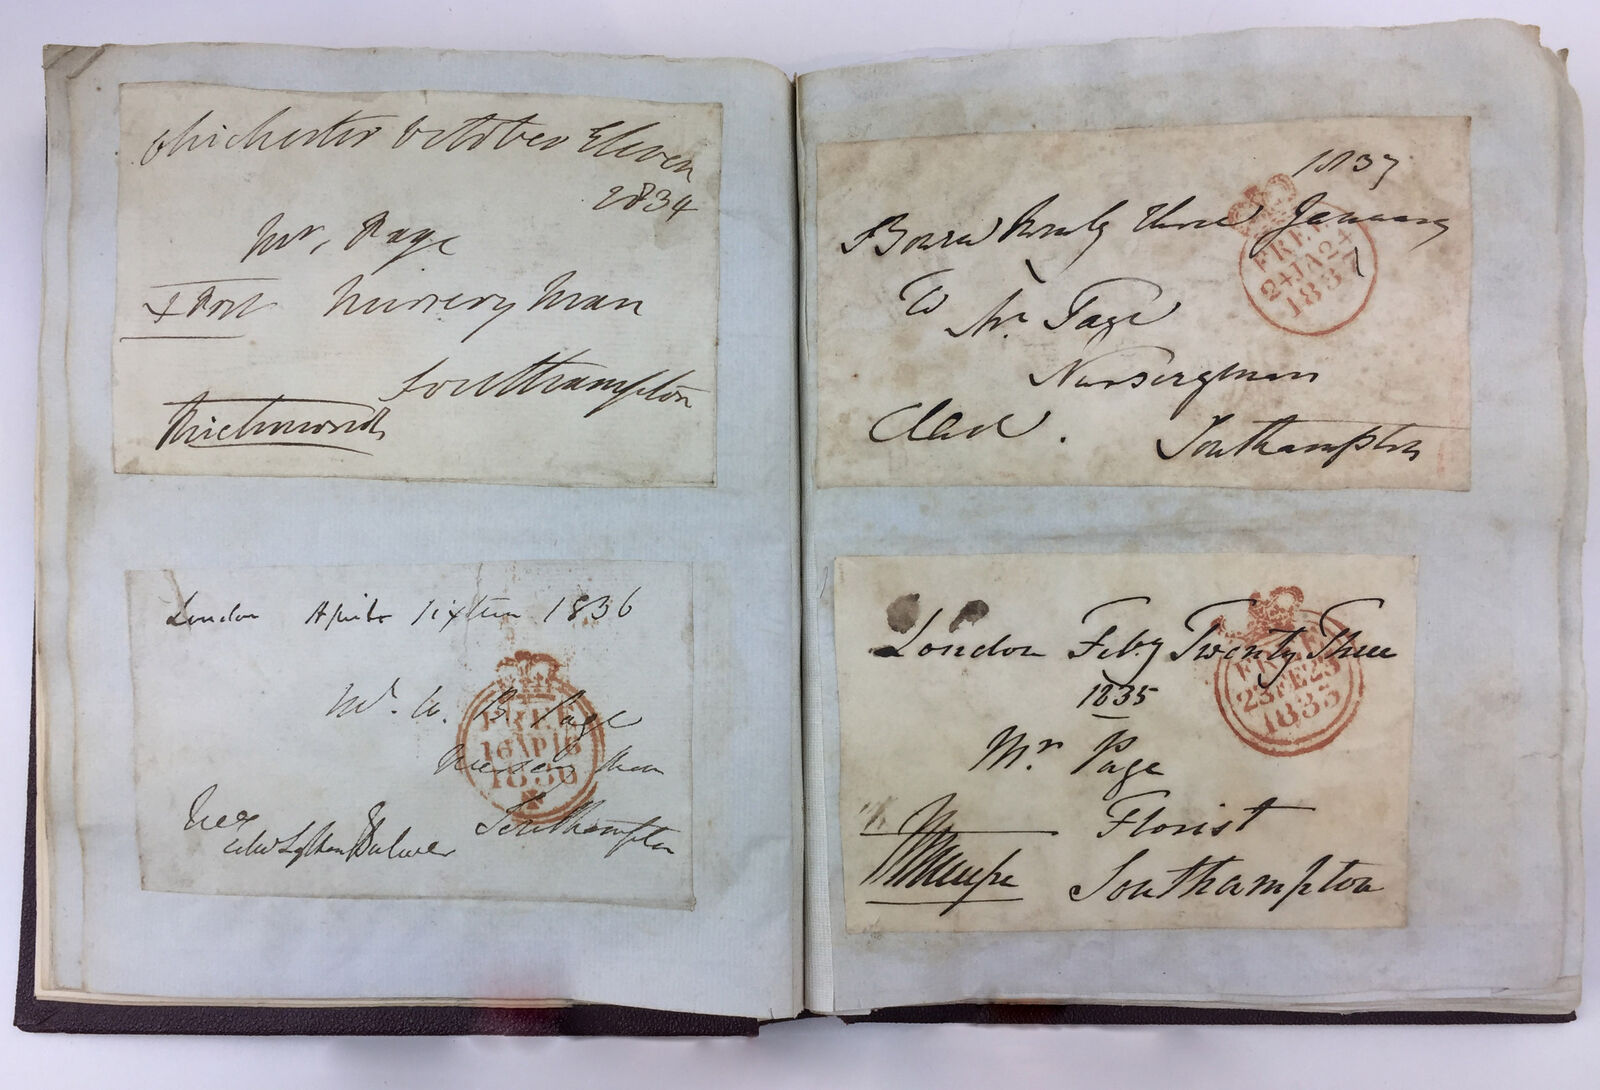 Chichester October Eleven
1834
Mr, Page
Post Nursery Man
Southampton
Richmond
London April sixteen 1836
Mr. W. B. Page
Nursery Man
Southampton
Free
Lytton Bulwer
FREE
16 AP 16
1836
1837
Twenty Three January
To
Mr. Page
Nurseryman
Southampton
FREE
24 JA 24
1837
London Feby Twenty Three
1835
Mr. Page
Florist
Southampton
FREE
23 FE 23
1835